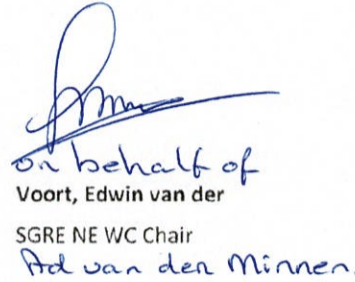 on behalf of
Voort, Edwin van der
SGRE NE WC Chair
Ad van den Minnen.